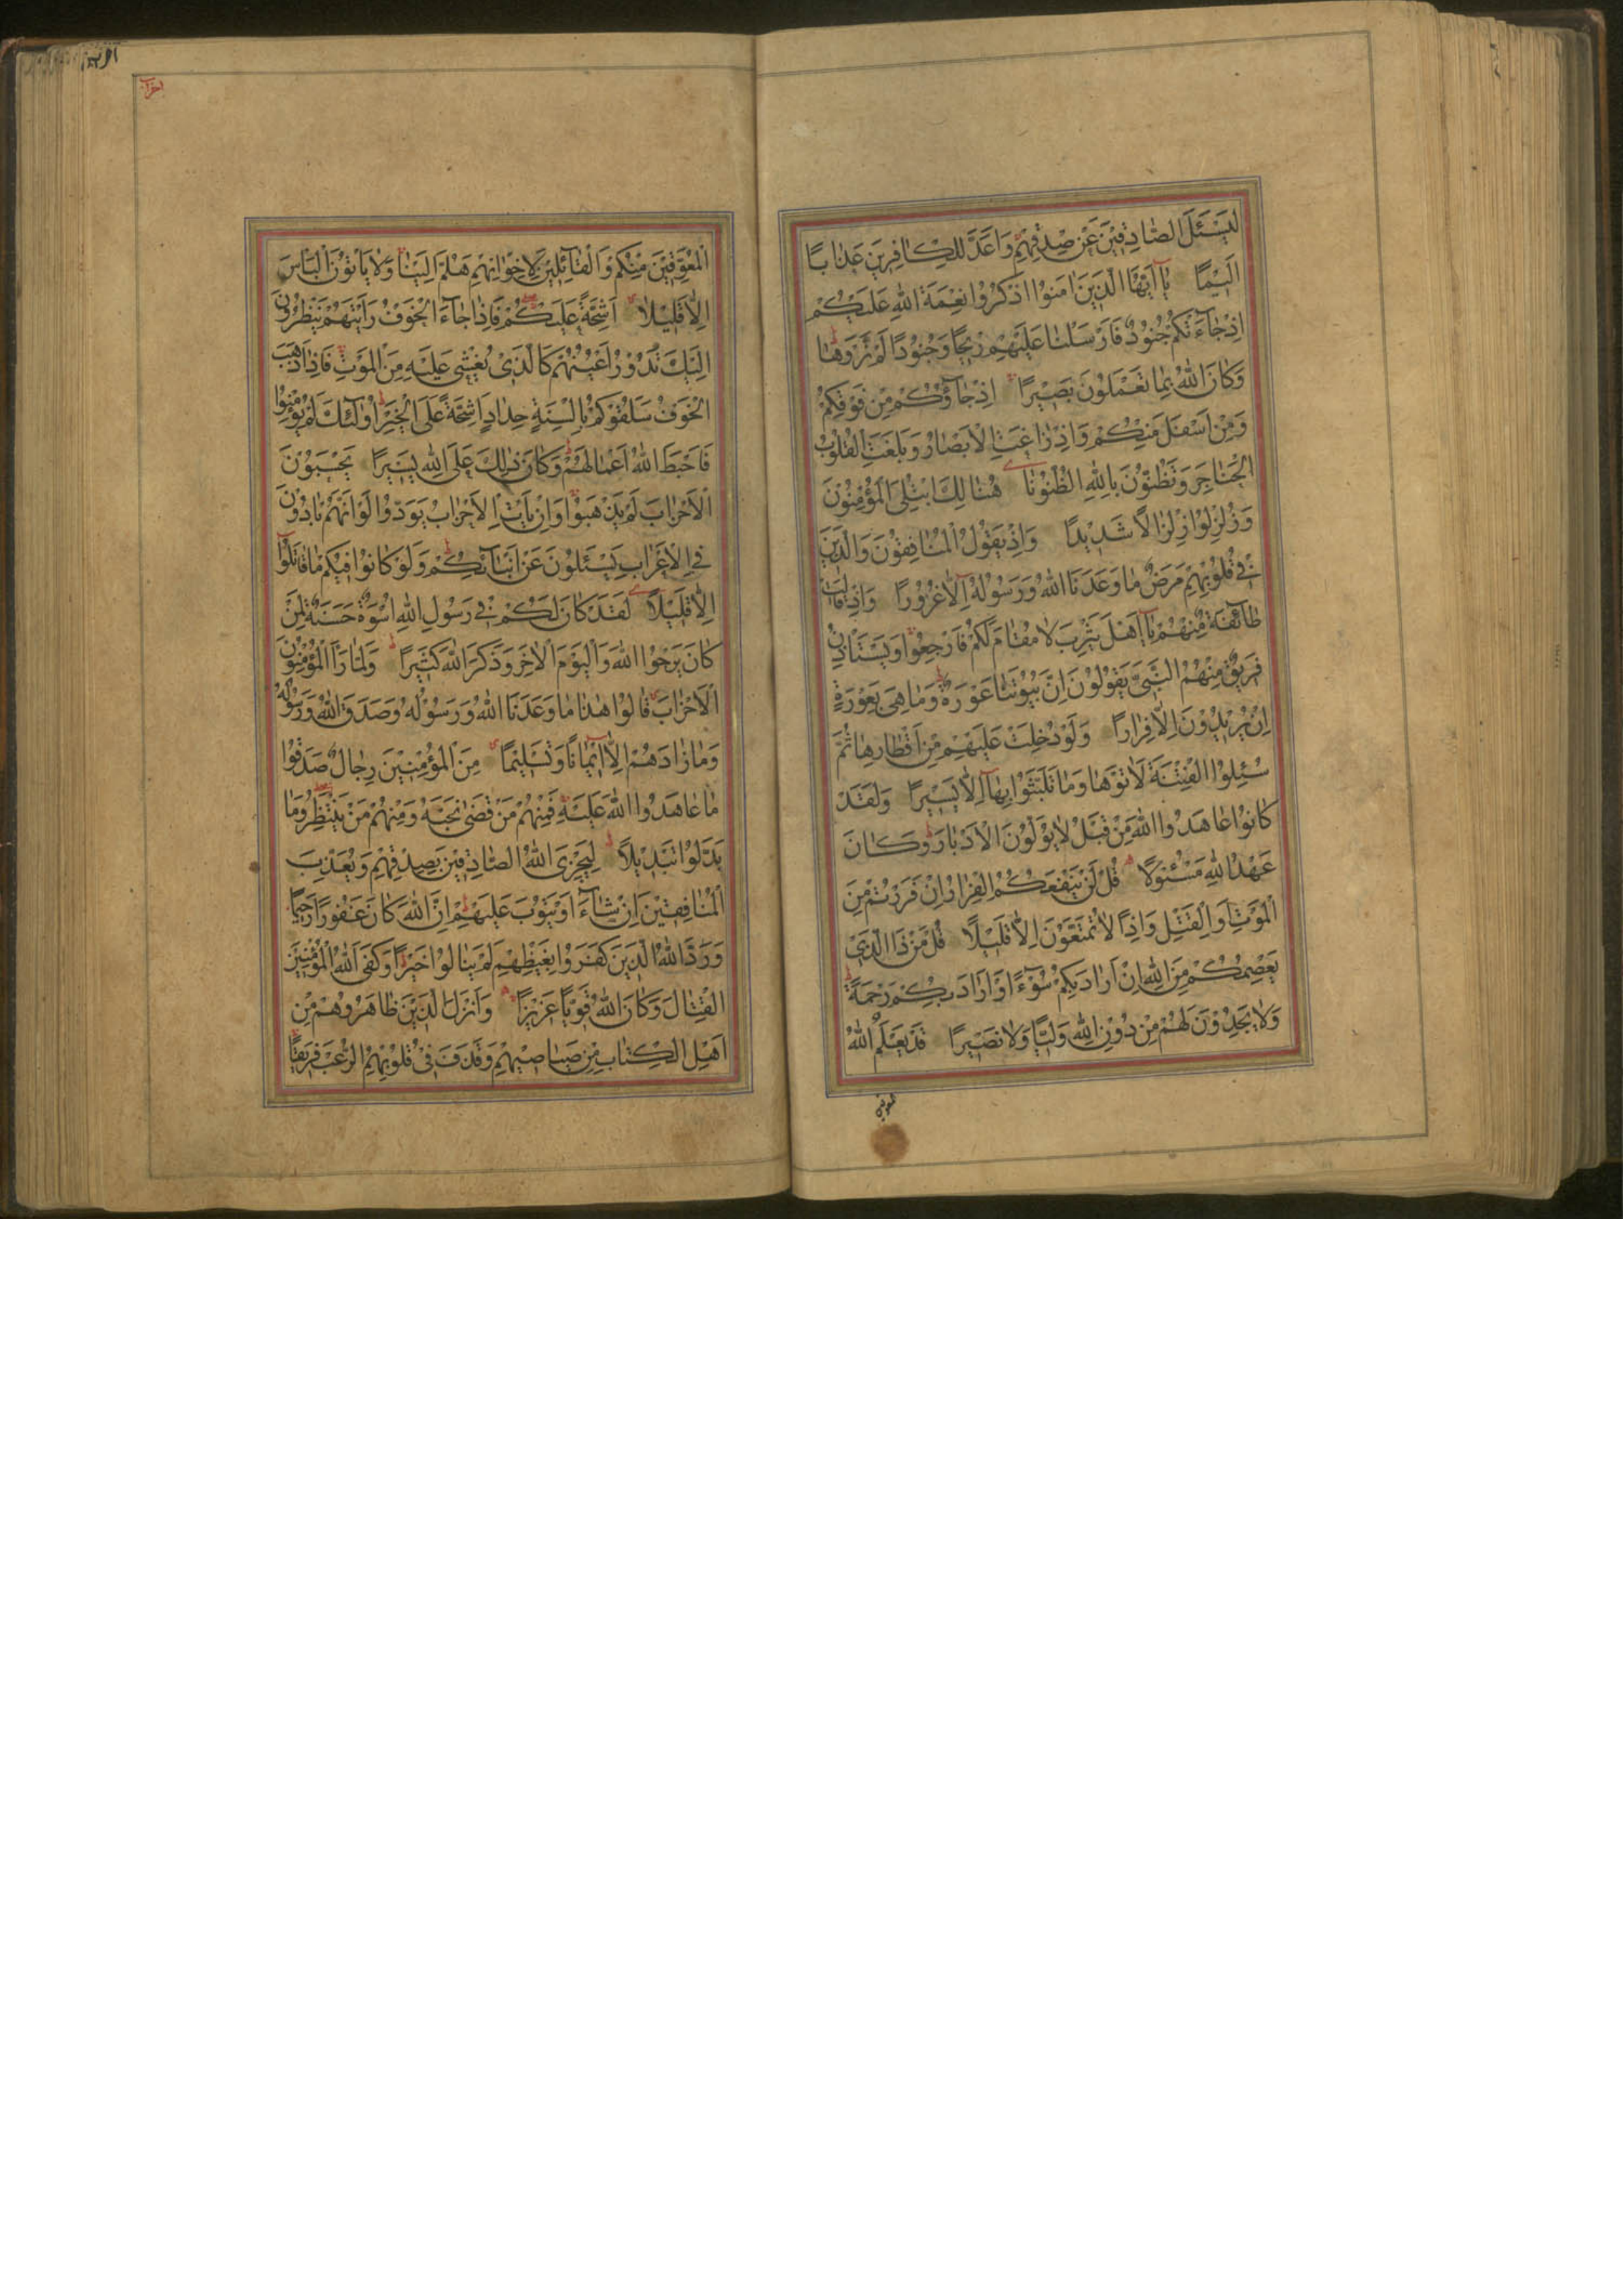 لِيَسْئَلَ الصَّادِقِينَ عَنْ صِدْقِهِمْ وَاَعَدَّ لِلْكَافِرِينَ عَذَابًا
اَلِيمًا يَا اَيُّهَا الَّذِينَ اٰمَنُوا اذْكُرُوا نِعْمَةَ اللّٰهِ عَلَيْكُمْ
اِذْ جَاءَتْكُمْ جُنُودٌ فَاَرْسَلْنَا عَلَيْهِمْ رِيحًا وَجُنُودًا لَمْ تَرَوْهَا
وَكَانَ اللّٰهُ بِمَا تَعْمَلُونَ بَصِيرًا اِذْ جَاؤُكُمْ مِنْ فَوْقِكُمْ
وَمِنْ اَسْفَلَ مِنْكُمْ وَاِذْ زَاغَتِ الْاَبْصَارُ وَبَلَغَتِ الْقُلُوبُ
الْحَنَاجِرَ وَتَظُنُّونَ بِاللّٰهِ الظُّنُونَا هُنَالِكَ ابْتُلِيَ الْمُؤْمِنُونَ
وَزُلْزِلُوا زِلْزَالًا شَدِيدًا وَاِذْ يَقُولُ الْمُنَافِقُونَ وَالَّذِينَ
فِي قُلُوبِهِمْ مَرَضٌ مَا وَعَدَنَا اللّٰهُ وَرَسُولُهُ اِلَّا غُرُورًا وَاِذْ قَالَتْ
طَائِفَةٌ مِنْهُمْ يَا اَهْلَ يَثْرِبَ لَا مُقَامَ لَكُمْ فَارْجِعُوا وَيَسْتَاْذِنُ
فَرِيقٌ مِنْهُمُ النَّبِيَّ يَقُولُونَ اِنَّ بُيُوتَنَا عَوْرَةٌ وَمَا هِيَ بِعَوْرَةٍ
اِنْ يُرِيدُونَ اِلَّا فِرَارًا وَلَوْ دُخِلَتْ عَلَيْهِمْ مِنْ اَقْطَارِهَا ثُمَّ
سُئِلُوا الْفِتْنَةَ لَاٰتَوْهَا وَمَا تَلَبَّثُوا بِهَا اِلَّا يَسِيرًا وَلَقَدْ
كَانُوا عَاهَدُوا اللّٰهَ مِنْ قَبْلُ لَا يُوَلُّونَ الْاَدْبَارَ وَكَانَ
عَهْدُ اللّٰهِ مَسْئُولًا قُلْ لَنْ يَنْفَعَكُمُ الْفِرَارُ اِنْ فَرَرْتُمْ مِنَ
الْمَوْتِ اَوِ الْقَتْلِ وَاِذًا لَا تُمَتَّعُونَ اِلَّا قَلِيلًا قُلْ مَنْ ذَا الَّذِي
يَعْصِمُكُمْ مِنَ اللّٰهِ اِنْ اَرَادَ بِكُمْ سُوءًا اَوْ اَرَادَ بِكُمْ رَحْمَةً
وَلَا يَجِدُونَ لَهُمْ مِنْ دُونِ اللّٰهِ وَلِيًّا وَلَا نَصِيرًا قَدْ يَعْلَمُ اللّٰهُ
المعوقين
احزاب
الْمُعَوِّقِينَ مِنْكُمْ وَالْقَائِلِينَ لِاِخْوَانِهِمْ هَلُمَّ اِلَيْنَا وَلَا يَاْتُونَ الْبَاْسَ
اِلَّا قَلِيلًا اَشِحَّةً عَلَيْكُمْ فَاِذَا جَاءَ الْخَوْفُ رَاَيْتَهُمْ يَنْظُرُونَ
اِلَيْكَ تَدُورُ اَعْيُنُهُمْ كَالَّذِي يُغْشٰى عَلَيْهِ مِنَ الْمَوْتِ فَاِذَا ذَهَبَ
الْخَوْفُ سَلَقُوكُمْ بِاَلْسِنَةٍ حِدَادٍ اَشِحَّةً عَلَى الْخَيْرِ اُولٰئِكَ لَمْ يُؤْمِنُوا
فَاَحْبَطَ اللّٰهُ اَعْمَالَهُمْ وَكَانَ ذٰلِكَ عَلَى اللّٰهِ يَسِيرًا يَحْسَبُونَ
الْاَحْزَابَ لَمْ يَذْهَبُوا وَاِنْ يَاْتِ الْاَحْزَابُ يَوَدُّوا لَوْ اَنَّهُمْ بَادُونَ
فِي الْاَعْرَابِ يَسْئَلُونَ عَنْ اَنْبَائِكُمْ وَلَوْ كَانُوا فِيكُمْ مَا قَاتَلُوا
اِلَّا قَلِيلًا لَقَدْ كَانَ لَكُمْ فِي رَسُولِ اللّٰهِ اُسْوَةٌ حَسَنَةٌ لِمَنْ
كَانَ يَرْجُوا اللّٰهَ وَالْيَوْمَ الْاٰخِرَ وَذَكَرَ اللّٰهَ كَثِيرًا وَلَمَّا رَاَ الْمُؤْمِنُونَ
الْاَحْزَابَ قَالُوا هٰذَا مَا وَعَدَنَا اللّٰهُ وَرَسُولُهُ وَصَدَقَ اللّٰهُ وَرَسُولُهُ
وَمَا زَادَهُمْ اِلَّا اِيمَانًا وَتَسْلِيمًا مِنَ الْمُؤْمِنِينَ رِجَالٌ صَدَقُوا
مَا عَاهَدُوا اللّٰهَ عَلَيْهِ فَمِنْهُمْ مَنْ قَضٰى نَحْبَهُ وَمِنْهُمْ مَنْ يَنْتَظِرُ وَمَا
بَدَّلُوا تَبْدِيلًا لِيَجْزِيَ اللّٰهُ الصَّادِقِينَ بِصِدْقِهِمْ وَيُعَذِّبَ
الْمُنَافِقِينَ اِنْ شَاءَ اَوْ يَتُوبَ عَلَيْهِمْ اِنَّ اللّٰهَ كَانَ غَفُورًا رَحِيمًا
وَرَدَّ اللّٰهُ الَّذِينَ كَفَرُوا بِغَيْظِهِمْ لَمْ يَنَالُوا خَيْرًا وَكَفَى اللّٰهُ الْمُؤْمِنِينَ
الْقِتَالَ وَكَانَ اللّٰهُ قَوِيًّا عَزِيزًا وَاَنْزَلَ الَّذِينَ ظَاهَرُوهُمْ مِنْ
اَهْلِ الْكِتَابِ مِنْ صَيَاصِيهِمْ وَقَذَفَ فِي قُلُوبِهِمُ الرُّعْبَ فَرِيقًا